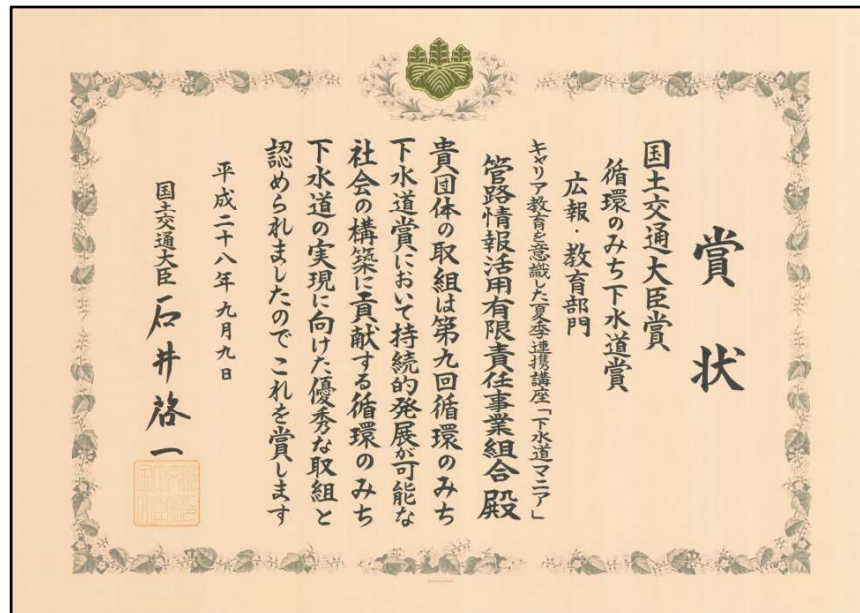 賞状
国土交通大臣賞
循環のみち下水道賞
広報・教育部門
キャリア教育を意識した夏季連携講座「下水道マニア」
管路情報活用有限責任事業組合 殿
貴団体の取組は第九回循環のみち
下水道賞において持続的発展が可能な
社会の構築に貢献する循環のみち
下水道の実現に向けた優秀な取組と
認められましたのでこれを賞します
平成二十八年九月九日
国土交通大臣 石井啓一